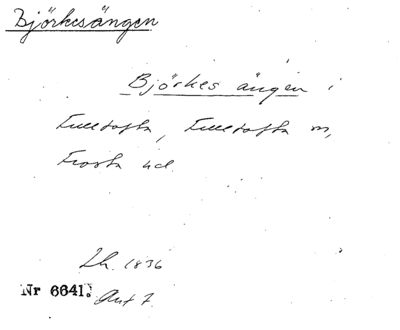 Björkesängen
Björkes ängen i
Fulltofta, Fulltofta sn,
Frosta hd.
Lh. 1836
Nr 6641. Akt 7